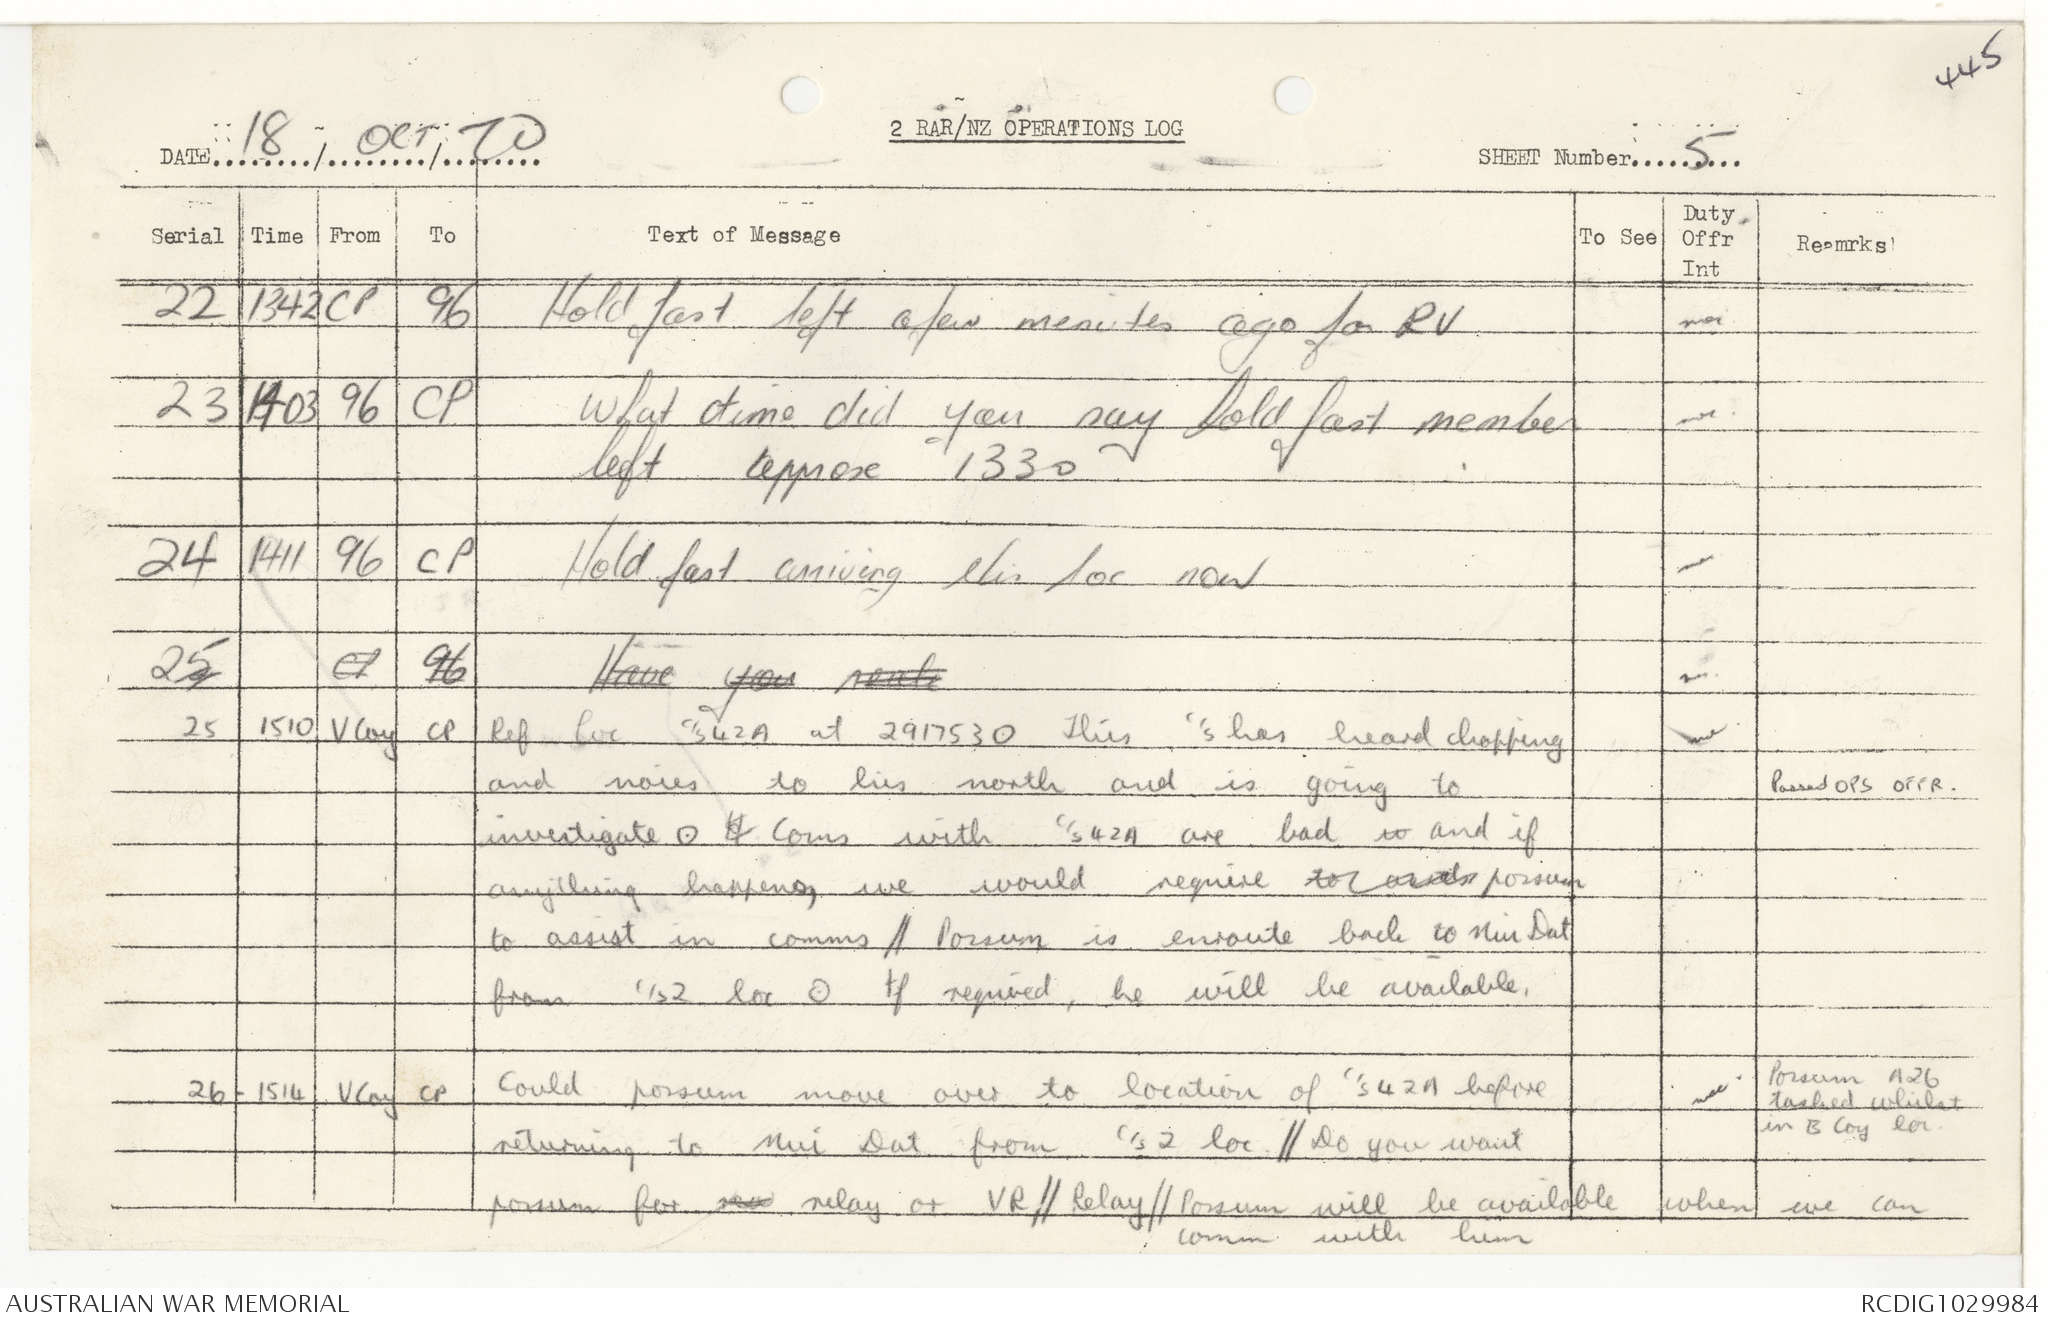 445
2 RAR/NZ OPERATIONS LOG
DATE 18 / OCT / 70
SHEET Number 5
Serial Time From To Text of Message To See Duty Offr Int Reamrks
22 1342 CP 96 Hold fast left a few minutes ago for RV
23 1403 96 CP What time did you say hold fast member
left approx 1330
24 1411 96 CP Hold fast arriving this loc now
25 CP 96 Have you
25 1510 V Coy CP Ref loc c/s 42A at 2917530 This c/s has heard chopping
and noies to his north and is going to Passed OPS OFFR.
investigate ⊙ Coms with c/s 42A are bad and if
anything happens, we would require possum
to assist in comms // Possum is enroute back to Nui Dat
from c/s 2 loc ⊙ If required, he will be available.
26 1514 V Coy CP Could possum move over to location of c/s 42A before Possum A26
tasked whilst
in B Coy loc.
returning to Nui Dat from c/s 2 loc. // Do you want
possum for relay or VR // Relay // Possum will be available when we can
comm with him
AUSTRALIAN WAR MEMORIAL
RCDIG1029984